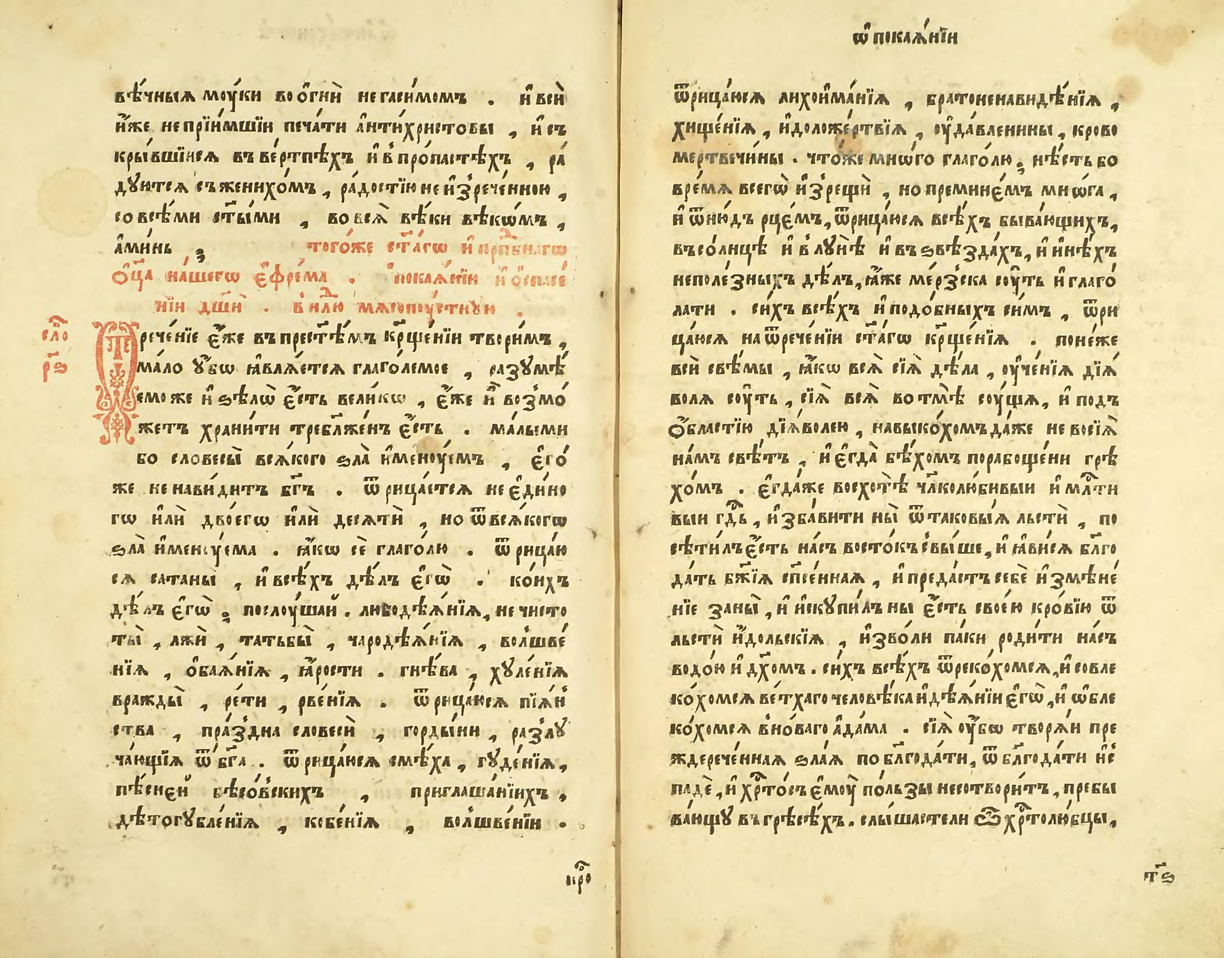 вѣ́чныѧ мꙋ́ки во ѻ҆гнѝ негасимомъ . и҆ всѝ
и҆́же непрїи́мшїи печа́ти а҆нти́христовы , и҆ съ
кры́вшїисѧ въ ве́ртпѣхъ и҆ в̾ пропа́стѣхъ , ра́
дꙋютсѧ съ женихо́мъ , ра́достїю неи҆зрече́нною ,
со всѣ́ми ст҃ы́ми , во всѧ̀ вѣ́ки вѣкѡ́мъ ,
а҆ми́нь ,
тогѡ́же ст҃а́гѡ и҆ прпⷣбнагѡ
ѻ҆ц҃а̀ на́шегѡ є҆фре́ма . ѡ҆ покаѧ́нїи и҆ ѡ҆ спасе́
нїи дш҃и́ . в̾ нлⷣю мѧсопꙋ́стнꙋю .
сло́
р҃ѕ
Ѿрече́нїе є҆́же въ прест҃ѣ́мъ кр҃ще́нїи твори́мъ ,
ма́ло ᲂу҆́бѡ ꙗ҆влѧ́етсѧ глаго́лемое , разꙋмѣ́
емо же и҆ ѕѣлѡ̀ є҆́сть вели́кѡ , є҆́же и҆ возмо́
жетъ храни́ти требл҃же́нъ є҆́сть . ма́лыми
бо словесы̀ всѧ́кого ѕла̀ и҆менꙋ́емъ , є҆го́
же ненави́дитъ бг҃ъ . ѿрица́етсѧ не є҆ди́но
гѡ и҆лѝ двоегѡ̀ и҆лѝ десѧтѝ , но ѿ всѧ́когѡ
ѕла̀ и҆менꙋ́ема . ꙗ҆́кѡ сѐ глаго́лю . ѿрица́ю
сѧ сатаны̀ , и҆ всѣ́хъ дѣ́лъ є҆гѡ̀ . ко́ихъ
дѣ́лъ є҆гѡ̀ ; послꙋ́шай . любодѣѧ́нїѧ , нечисто
ты̀ , лжѝ , татьбы̀ , чародѣѧ́нїѧ , волшве́
нїѧ , ѻ҆баѧ́нїѧ , ꙗ҆́рости . гнѣ́ва , хꙋле́нїѧ
вражды̀ , ре́ти , рве́нїѧ . ѿрица́юсѧ пїѧ́н
ства , пра́здна словесѝ , горды́ни , разлꙋ
ча́ющїѧ ѿ бг҃а . ѿрица́юсѧ смѣ́ха , гꙋде́нїѧ ,
пѣ́сней бѣсо́вскихъ , приглаша́нїихъ ,
дѣтогꙋбле́нїѧ , кобе́нїѧ , волшве́нїи .
кро́
ѡ҆ покаѧ́нїи
ѿрица́юсѧ лихои҆ма́нїѧ , братоненавидѣ́нїѧ ,
хище́нїѧ , и҆доложе́ртвїѧ , ᲂу҆да́вленины , крово
мертвечи́ны . что́же мнѡ́го глаго́лю ; нѣ́сть бо
вре́мѧ всегѡ̀ и҆зрещѝ , но премине́мъ мнѡ́га ,
и҆ ѿню́дъ рце́мъ , ѿрица́юсѧ всѣ́хъ быва́ющихъ ,
въ со́лнцѣ и҆ в̾ лꙋнѣ̀ и҆ въ ѕвѣ́здахъ , и҆ и҆нѣ́хъ
неполе́зныхъ дѣ́лъ , ꙗ҆́же ме́рзска сꙋ́ть и҆ глаго́
лати . си́хъ всѣ́хъ и҆ подо́бныхъ си́мъ , ѿри
ца́юсѧ на ѿрече́нїи ст҃а́гѡ кр҃ще́нїѧ . поне́же
всѝ свѣ́мы , ꙗ҆́кѡ всѧ̀ сїѧ̀ дѣ́ла , ᲂу҆че́нїѧ дїѧ́
волѧ сꙋ́ть , сїѧ̀ всѧ̀ во тмѣ̀ сꙋ́щїѧ , и҆ подъ
ѻ҆́бластїю дїѧ́волею , навыко́хомъ да́же не восїѧ̀
на́мъ свѣ́тъ , и҆ є҆гда̀ бѣ́хомъ порабоще́ни грѣ
хо́мъ . є҆гда́же восхотѣ̀ чл҃колюби́выи и҆ млⷭ҇ти
выи гдⷭ҇ь , и҆зба́вити ны̀ ѿ таковы́ѧ льстѝ , по
сѣти́лъ є҆́сть на́съ восто́къ свы́ше , и҆ ꙗ҆ви́сѧ бл҃го
да́ть бж҃їѧ сп҃се́ннаѧ , и҆ преда́стъ себѐ и҆змѣне́
нїе за ны̀ , и҆ и҆скꙋпи́лъ ны̀ є҆́сть свое́ю кро́вїю ѿ
льстѝ и҆́дольскїѧ , и҆зво́ли па́ки роди́ти на́съ
водо́ю и҆ дх҃омъ . си́хъ всѣ́хъ ѿреко́хомсѧ , и҆ совле
ко́хомсѧ ве́тхаго человѣ́ка и҆ дѣѧ́нїи є҆гѡ̀ , и҆ ѡ҆бле
ко́хомсѧ в̾ но́ваго а҆да́ма . сїѧ̀ ᲂу҆́бѡ творѧ́и пре
ждерече́ннаѧ ѕла́ѧ по бл҃года́ти , ѿ бл҃года́ти и҆с
падѐ , и҆ хрⷭ҇то́съ є҆мꙋ̀ по́льзы несотвори́тъ , пребы
ва́ющꙋ въ грѣсѣ́хъ . слы́шасте ли ѽ хрⷭ҇толю́бцы ,
т҃ѕ